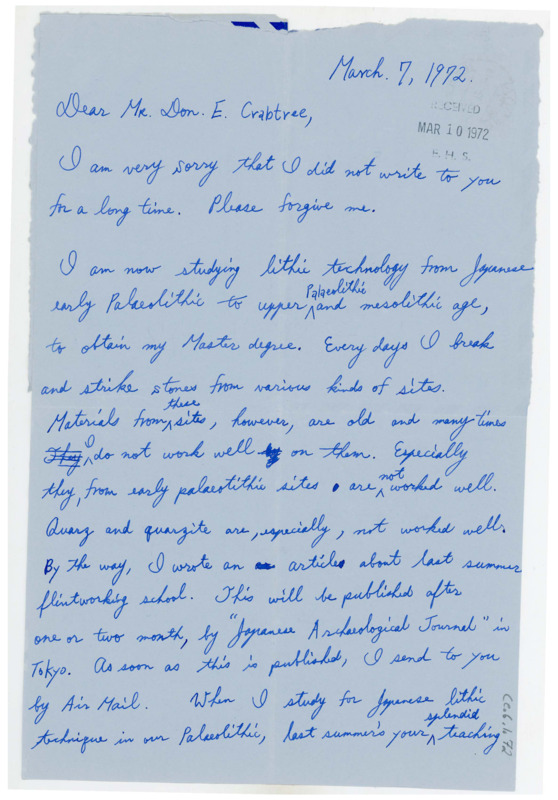 March. 7, 1972.
Dear Mr. Don. E. Crabtree,
RECEIVED
MAR 10 1972
I am very sorry that I did not write to you
for a long time. Please forgive me.
I am now studying lithic technology from Japanese
early Palaeolithic to upper Palaeolithic and mesolithic age,
to obtain my Master degree. Every days I break
and strike stones from various kinds of sites.
Materials from these sites, however, are old and many times
They I do not work well on them. Especially
they, from early palaeotithic sites are not worked well.
Quarz and quarzite are, especially, not worked well.
By the way, I wrote an article about last summer
flintworking school. This will be published after
one or two month, by "Japanese Archaeological Journal" in
Tokyo. As soon as this is published, I send to you
by Air Mail. When I study for Japanese lithic
technique in our Palaeolithic, last summer's your splendid teaching